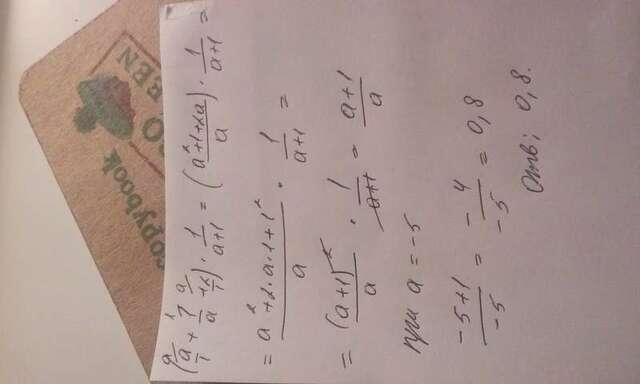 (a/1 + 1/a + 2/1) · 1/(a+1) = ((a²+1+2a)/a) · 1/(a+1) =
= (a²+2·a·1+1²)/a · 1/(a+1) =
= (a+1)²/a · 1/(a+1) = (a+1)/a
при a = -5
(-5+1)/(-5) = (-4)/(-5) = 0,8
Отв; 0,8.
copybook